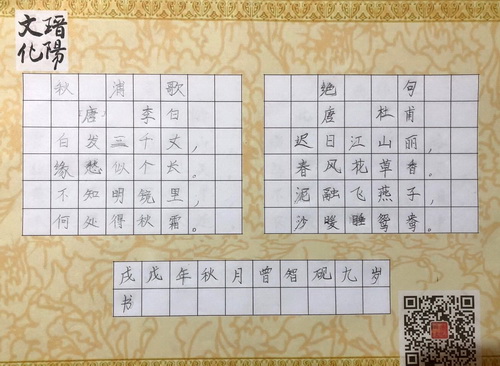 瑨陽
文化
秋浦歌
唐 李白
白发三千丈，
缘愁似个长。
不知明镜里，
何处得秋霜。
绝句
唐 杜甫
迟日江山丽，
春风花草香。
泥融飞燕子，
沙暖睡鸳鸯。
戌戊年秋月曾智砚九岁
书